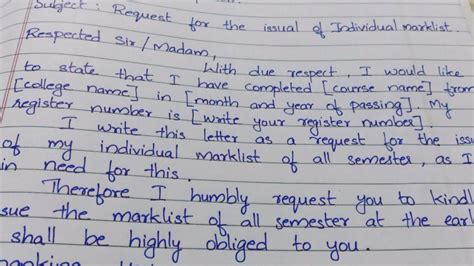 Subject : Request for the issual of Individual marklist.
Respected Sir / Madam,
With due respect, I would like
to state that I have completed [course name] from
[college name] in [month and year of passing]. My
register number is [write your register number].
I write this letter as a request for the iss
of my individual marklist of all semester, as I
in need for this.
Therefore I humbly request you to kindl
sue the marklist of all semester at the earl
shall be highly obliged to you.